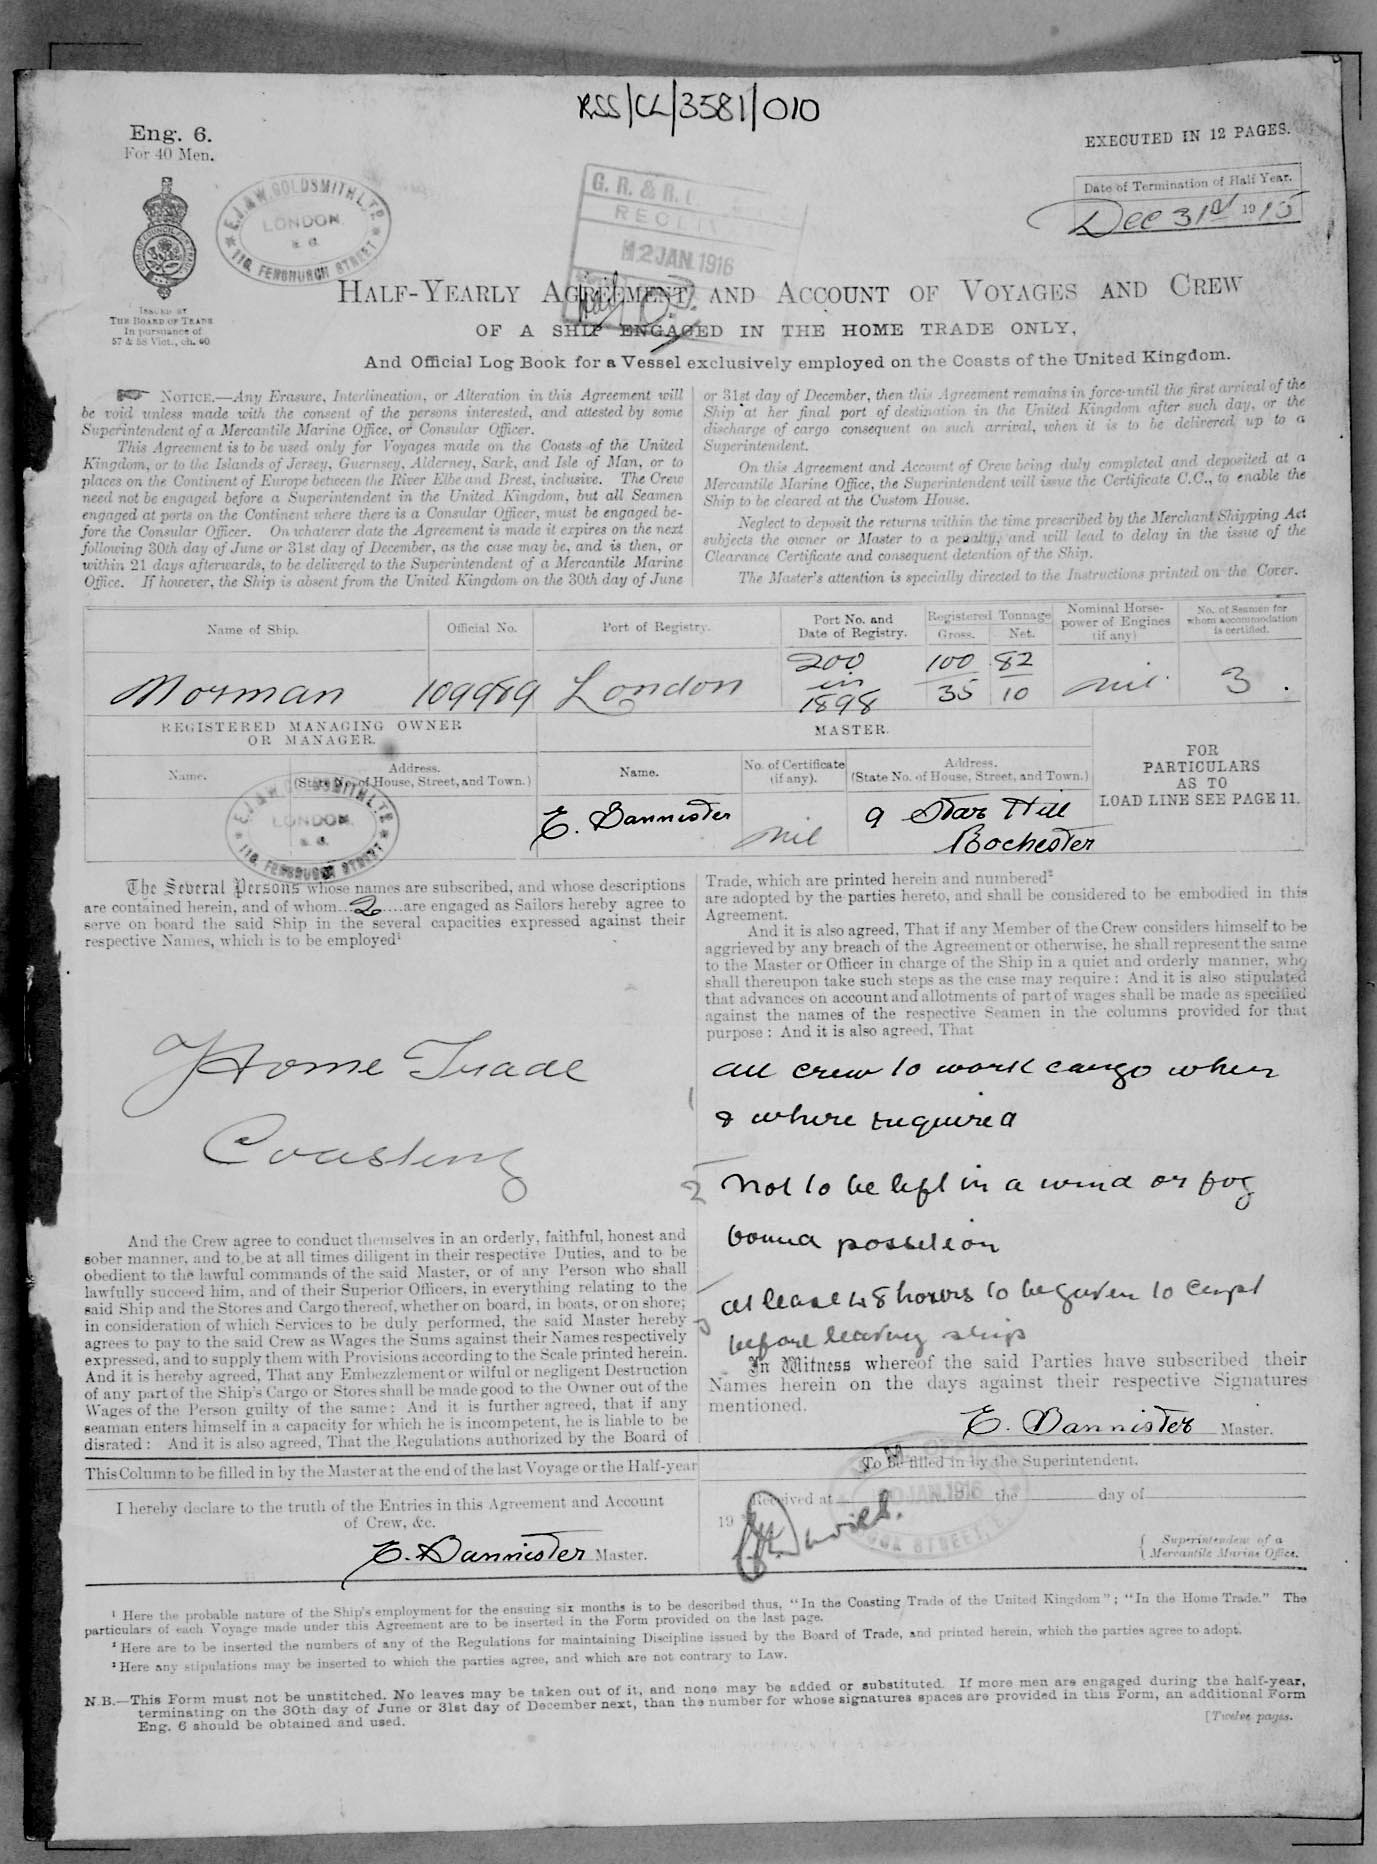 RSS/CL/3581/010
Eng. 6.
For 40 Men.
EXECUTED IN 12 PAGES.
Date of Termination of Half Year.
Dec 31st 1915
E.J. & W. GOLDSMITH LTD
LONDON.
E.C.
116, FENCHURCH STREET
G. R. & R.
12 JAN. 1916
ISSUED BY
THE BOARD OF TRADE
In pursuance of
57 & 58 Vict., ch. 60
HALF-YEARLY AGREEMENT AND ACCOUNT OF VOYAGES AND CREW
OF A SHIP ENGAGED IN THE HOME TRADE ONLY,
And Official Log Book for a Vessel exclusively employed on the Coasts of the United Kingdom.
NOTICE.—Any Erasure, Interlineation, or Alteration in this Agreement will
be void unless made with the consent of the persons interested, and attested by some
Superintendent of a Mercantile Marine Office, or Consular Officer.
This Agreement is to be used only for Voyages made on the Coasts of the United
Kingdom, or to the Islands of Jersey, Guernsey, Alderney, Sark, and Isle of Man, or to
places on the Continent of Europe between the River Elbe and Brest, inclusive. The Crew
need not be engaged before a Superintendent in the United Kingdom, but all Seamen
engaged at ports on the Continent where there is a Consular Officer, must be engaged be-
fore the Consular Officer. On whatever date the Agreement is made it expires on the next
following 30th day of June or 31st day of December, as the case may be, and is then, or
within 21 days afterwards, to be delivered to the Superintendent of a Mercantile Marine
Office. If however, the Ship is absent from the United Kingdom on the 30th day of June
or 31st day of December, then this Agreement remains in force until the first arrival of the
Ship at her final port of destination in the United Kingdom after such day, or the
discharge of cargo consequent on such arrival, when it is to be delivered up to a
Superintendent.
On this Agreement and Account of Crew being duly completed and deposited at a
Mercantile Marine Office, the Superintendent will issue the Certificate C.C., to enable the
Ship to be cleared at the Custom House.
Neglect to deposit the returns within the time prescribed by the Merchant Shipping Act
subjects the owner or Master to a penalty, and will lead to delay in the issue of the
Clearance Certificate and consequent detention of the Ship.
The Master's attention is specially directed to the Instructions printed on the Cover.
Name of Ship. Official No. Port of Registry. Port No. and Date of Registry. Registered Tonnage Gross. Net. Nominal Horse-power of Engines (if any) No. of Seamen for whom accommodation is certified.
Morman 109989 London 200 in 1898 100 35 82 10 nil 3.
REGISTERED MANAGING OWNER
OR MANAGER.
MASTER.
Name. Address. (State No. of House, Street, and Town.)
Name. No. of Certificate (if any). Address. (State No. of House, Street, and Town.)
FOR
PARTICULARS
AS TO
LOAD LINE SEE PAGE 11.
E.J. & W. GOLDSMITH LTD
LONDON.
E.C.
116, FENCHURCH STREET
E. Bannister nil 9 Star Hill
Rochester
The Several Persons whose names are subscribed, and whose descriptions
are contained herein, and of whom 2 are engaged as Sailors hereby agree to
serve on board the said Ship in the several capacities expressed against their
respective Names, which is to be employed¹
Home Trade
Coasting
And the Crew agree to conduct themselves in an orderly, faithful, honest and
sober manner, and to be at all times diligent in their respective Duties, and to be
obedient to the lawful commands of the said Master, or of any Person who shall
lawfully succeed him, and of their Superior Officers, in everything relating to the
said Ship and the Stores and Cargo thereof, whether on board, in boats, or on shore;
in consideration of which Services to be duly performed, the said Master hereby
agrees to pay to the said Crew as Wages the Sums against their Names respectively
expressed, and to supply them with Provisions according to the Scale printed herein.
And it is hereby agreed, That any Embezzlement or wilful or negligent Destruction
of any part of the Ship's Cargo or Stores shall be made good to the Owner out of the
Wages of the Person guilty of the same: And it is further agreed, that if any
seaman enters himself in a capacity for which he is incompetent, he is liable to be
disrated: And it is also agreed, That the Regulations authorized by the Board of
Trade, which are printed herein and numbered²
are adopted by the parties hereto, and shall be considered to be embodied in this
Agreement.
And it is also agreed, That if any Member of the Crew considers himself to be
aggrieved by any breach of the Agreement or otherwise, he shall represent the same
to the Master or Officer in charge of the Ship in a quiet and orderly manner, who
shall thereupon take such steps as the case may require: And it is also stipulated
that advances on account and allotments of part of wages shall be made as specified
against the names of the respective Seamen in the columns provided for that
purpose: And it is also agreed, That
1 all crew to work cargo when
& where required
2 not to be left in a wind or fog
bound possition
3 at least 48 hours to be given to Capt
before leaving ship
In Witness whereof the said Parties have subscribed their
Names herein on the days against their respective Signatures
mentioned.
E. Bannister Master.
This Column to be filled in by the Master at the end of the last Voyage or the Half-year
I hereby declare to the truth of the Entries in this Agreement and Account
of Crew, &c.
E. Bannister Master.
To be filled in by the Superintendent.
Received at the day of
19
JAN. 1916
Superintendent of a
Mercantile Marine Office.
¹ Here the probable nature of the Ship's employment for the ensuing six months is to be described thus, "In the Coasting Trade of the United Kingdom"; "In the Home Trade." The
particulars of each Voyage made under this Agreement are to be inserted in the Form provided on the last page.
² Here are to be inserted the numbers of any of the Regulations for maintaining Discipline issued by the Board of Trade, and printed herein, which the parties agree to adopt.
³ Here any stipulations may be inserted to which the parties agree, and which are not contrary to Law.
N.B.—This Form must not be unstitched. No leaves may be taken out of it, and none may be added or substituted. If more men are engaged during the half-year,
terminating on the 30th day of June or 31st day of December next, than the number for whose signatures spaces are provided in this Form, an additional Form
Eng. 6 should be obtained and used.
[Twelve pages.